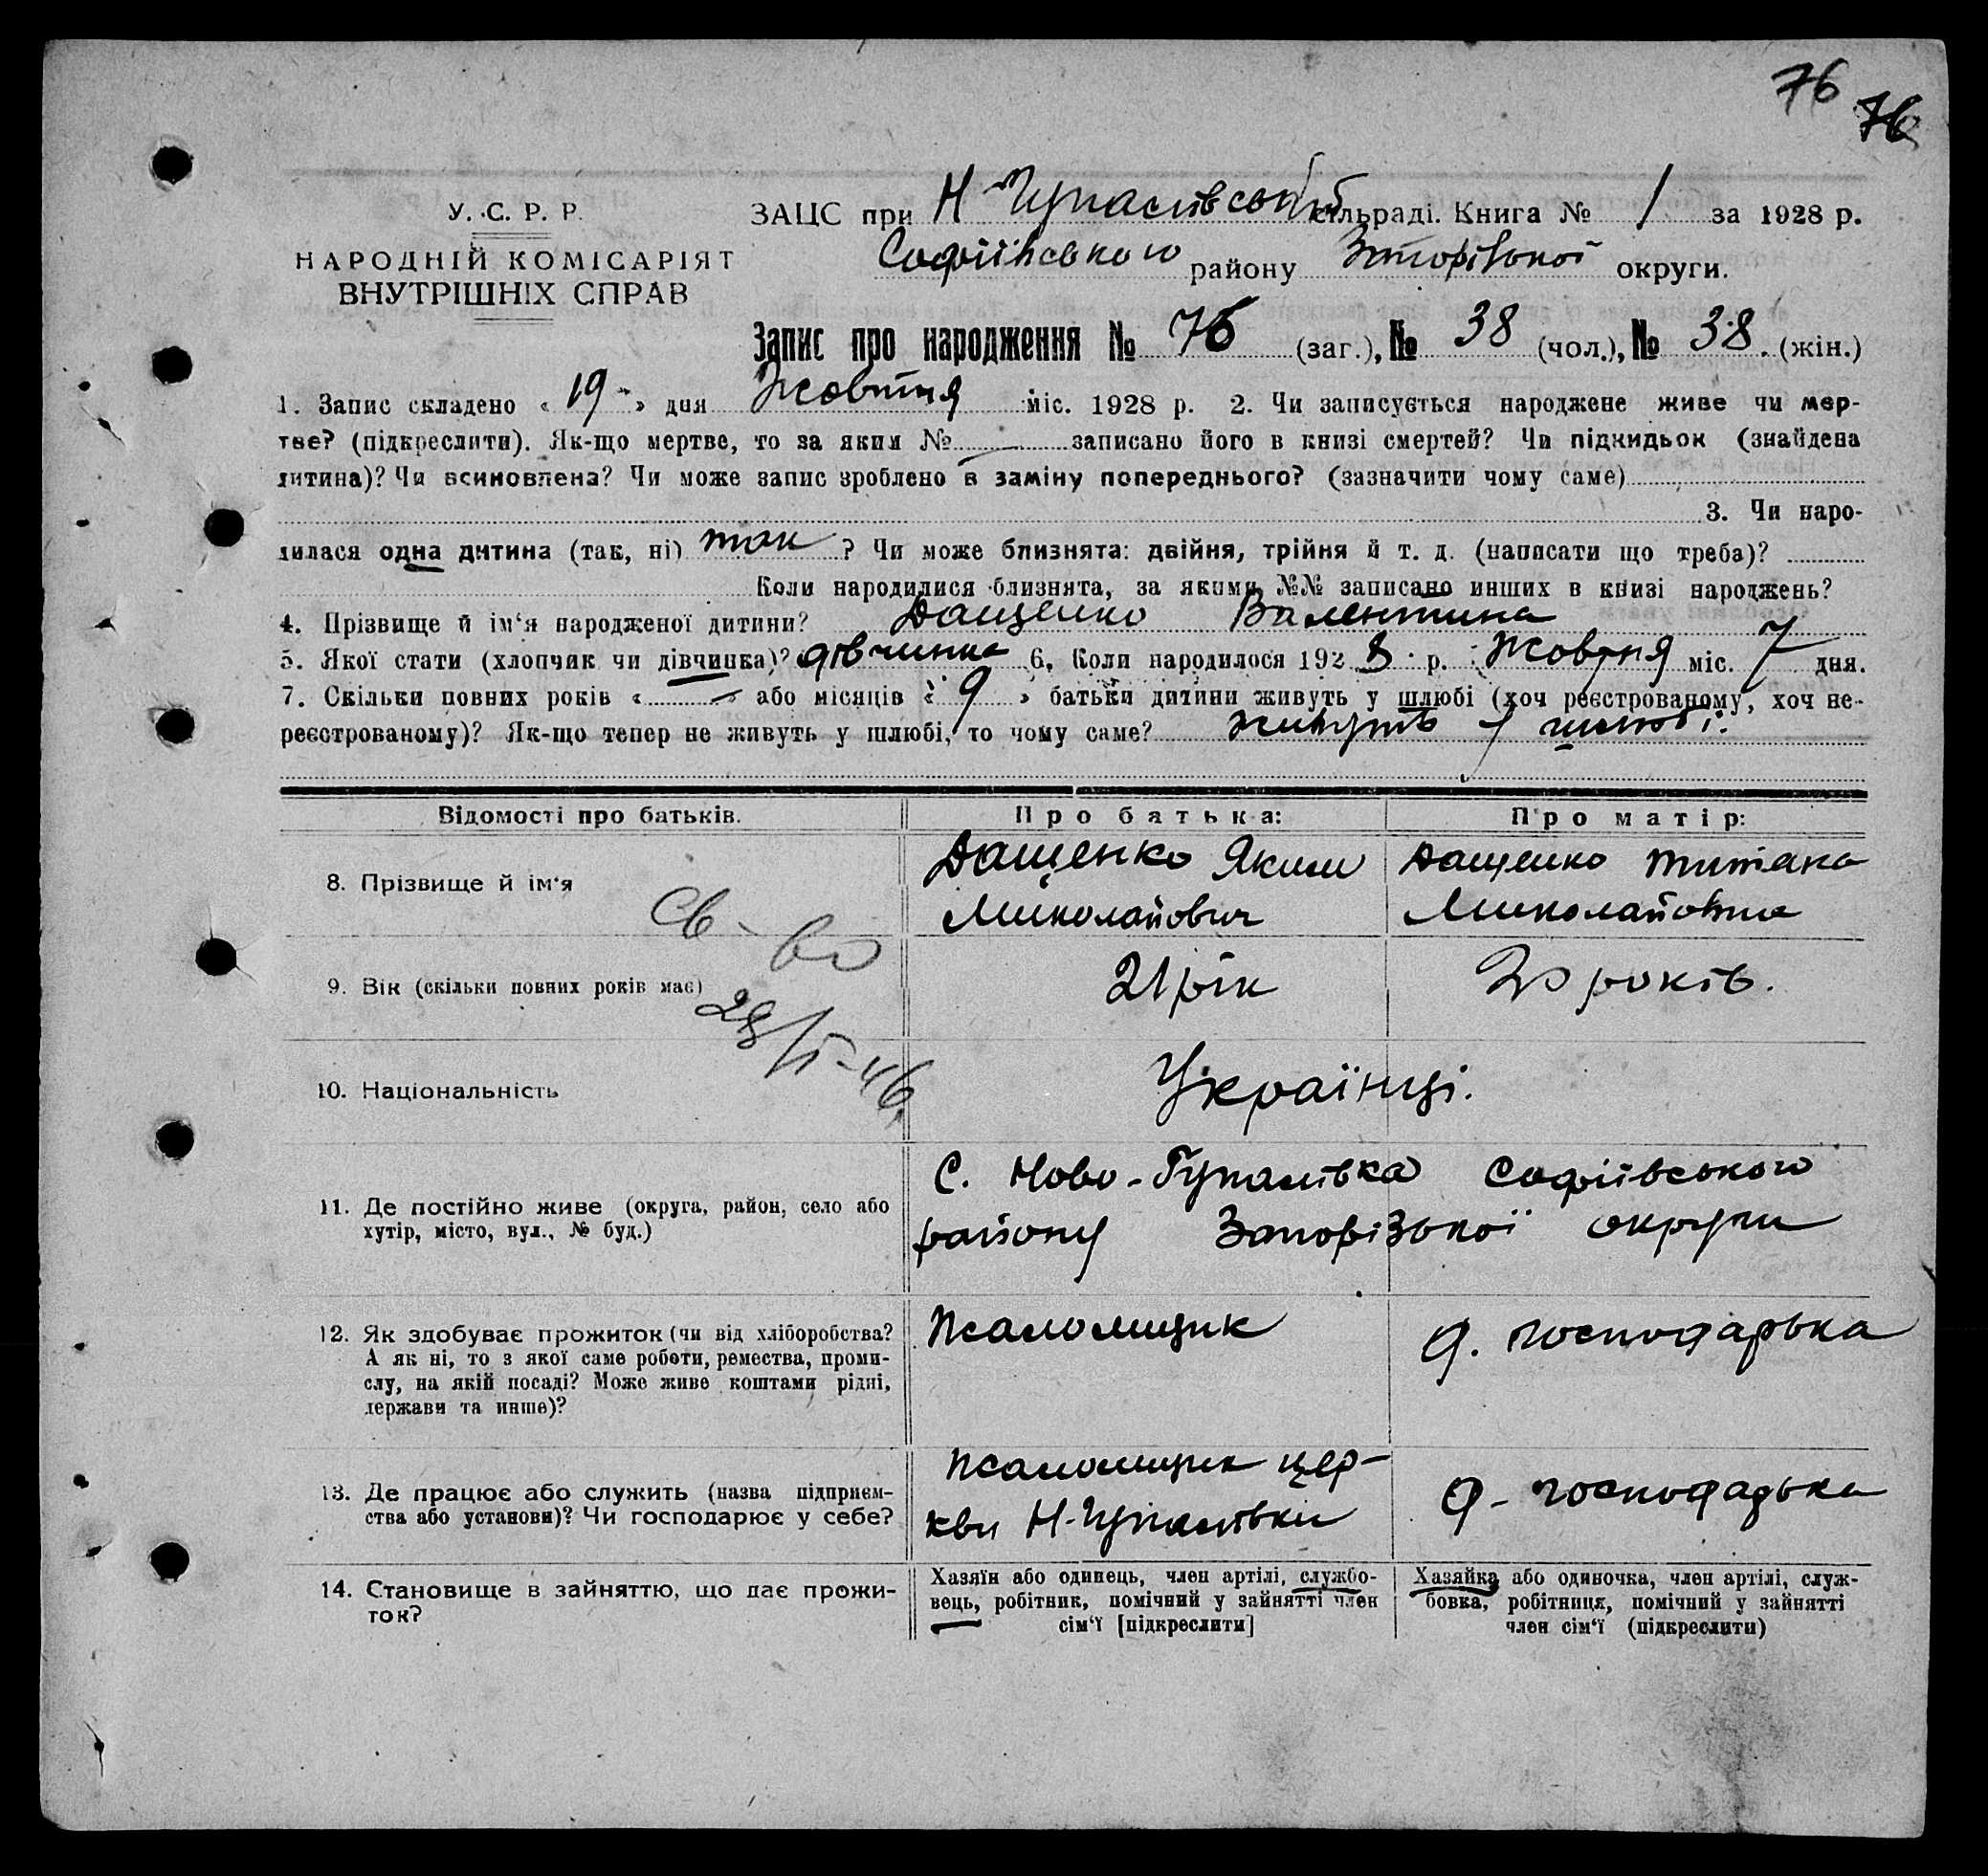 76
76
У. С. Р. Р.
НАРОДНІЙ КОМІСАРІЯТ
ВНУТРІШНІХ СПРАВ
ЗАЦС при Н-Гупалівській сільраді. Книга № 1 за 1928 р.
Софіївського району Запорізької округи.
Запис про народження № 76 (заг.), № 38 (чол.), № 38. (жін.)
1. Запис складено «19» дня Жовтня міс. 1928 р. 2. Чи записується народжене живе чи мер-
тве? (підкреслити). Як-що мертве, то за яким № записано його в книзі смертей? Чи підкидьок (знайдена
дитина)? Чи всиновлена? Чи може запис зроблено в заміну попереднього? (зазначити чому саме)
3. Чи наро-
дилася одна дитина (так, ні) так ? Чи може близнята: двійня, трійня й т. д. (написати що треба)?
Коли народилися близнята, за якими №№ записано инших в книзі народжень?
4. Прізвище й ім'я народженої дитини? Дащенко Валентина
5. Якої стати (хлопчик чи дівчинка)? дівчинка 6. Коли народилося 1928 р. Жовтня міс. 7 дня.
7. Скільки повних років « — » або місяців « 9 » батьки дитини живуть у шлюбі (хоч реєстрованому, хоч не-
реєстрованому)? Як-що тепер не живуть у шлюбі, то чому саме? живуть у шлюбі.
Відомості про батьків. Про батька: Про матір:
8. Прізвище й ім'я Дащенко Яким Дащенко Титяна
Миколайович Миколаївна
Св-во
28/V-46
9. Вік (скільки повних років має) 21 рік 20 років.
10. Національність Українці.
11. Де постійно живе (округа, район, село або
хутір, місто, вул., № буд.)
С. Ново-Гупалівка Софіївського
району Запорізької округи
12. Як здобуває прожиток (чи від хліборобства?
А як ні, то з якої саме роботи, ремества, проми-
слу, на якій посаді? Може живе коштами рідні,
держави та инше)?
Псаломщик д. господарька
13. Де працює або служить (назва підприєм-
ства або установи)? Чи господарює у себе?
псаломщик цер-
кви Н-Гупалівки
д- господарька
14. Становище в зайняттю, що дає прожи-
ток?
Хазяїн або одинець, член артілі, службо-
вець, робітник, помічний у зайнятті член
сім'ї [підкреслити]
Хазяйка або одиночка, член артілі, служ-
бовка, робітниця, помічний у зайнятті
член сім'ї (підкреслити)